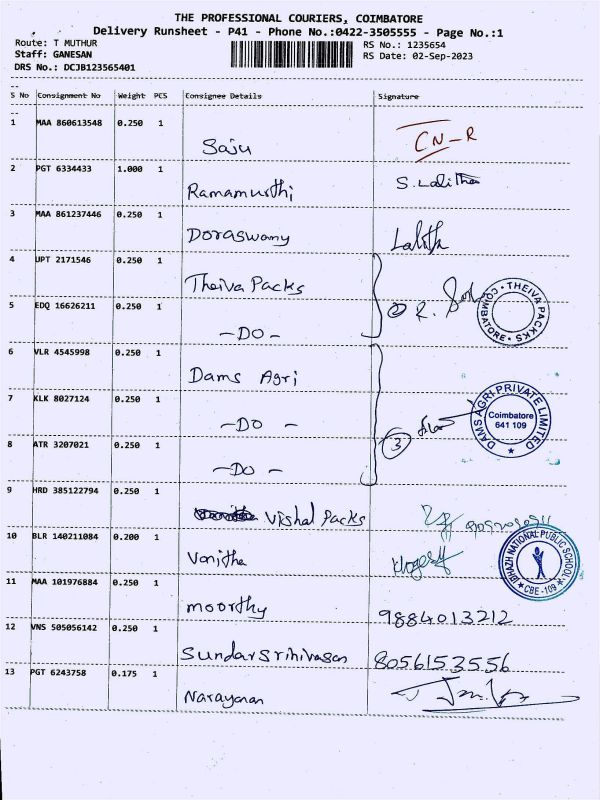 THE PROFESSIONAL COURIERS, COIMBATORE
Delivery Runsheet - P41 - Phone No.:0422-3505555 - Page No.:1
Route: T MUTHUR RS No.: 1235654
Staff: GANESAN RS Date: 02-Sep-2023
DRS No.: DCJB123565401
S No Consignment No Weight PCS Consignee Details Signature
1 MAA 860613548 0.250 1 Saju CN-R
2 PGT 6334433 1.000 1 Ramamurthi S. Lalitha
3 MAA 861237446 0.250 1 Doraswamy Lalitha
4 UPT 2171546 0.250 1 Theiva Packs
② R. THEIVA PACKS COIMBATORE
5 EDQ 16626211 0.250 1 -DO-
6 VLR 4545998 0.250 1 Dams Agri
7 KLK 8027124 0.250 1 -DO-
③ DAMS AGRI PRIVATE LIMITED
Coimbatore
641 109
8 ATR 3207021 0.250 1 -DO-
9 HRD 385122794 0.250 1 Vishal Packs
10 BLR 140211084 0.200 1 Vanitha
NATIONAL PUBLIC SCHOOL CBE-109
11 MAA 101976884 0.250 1 moorthy 9884013212
12 VNS 505056142 0.250 1 Sundar Srinivasan 8056153556
13 PGT 6243758 0.175 1 Narayanan